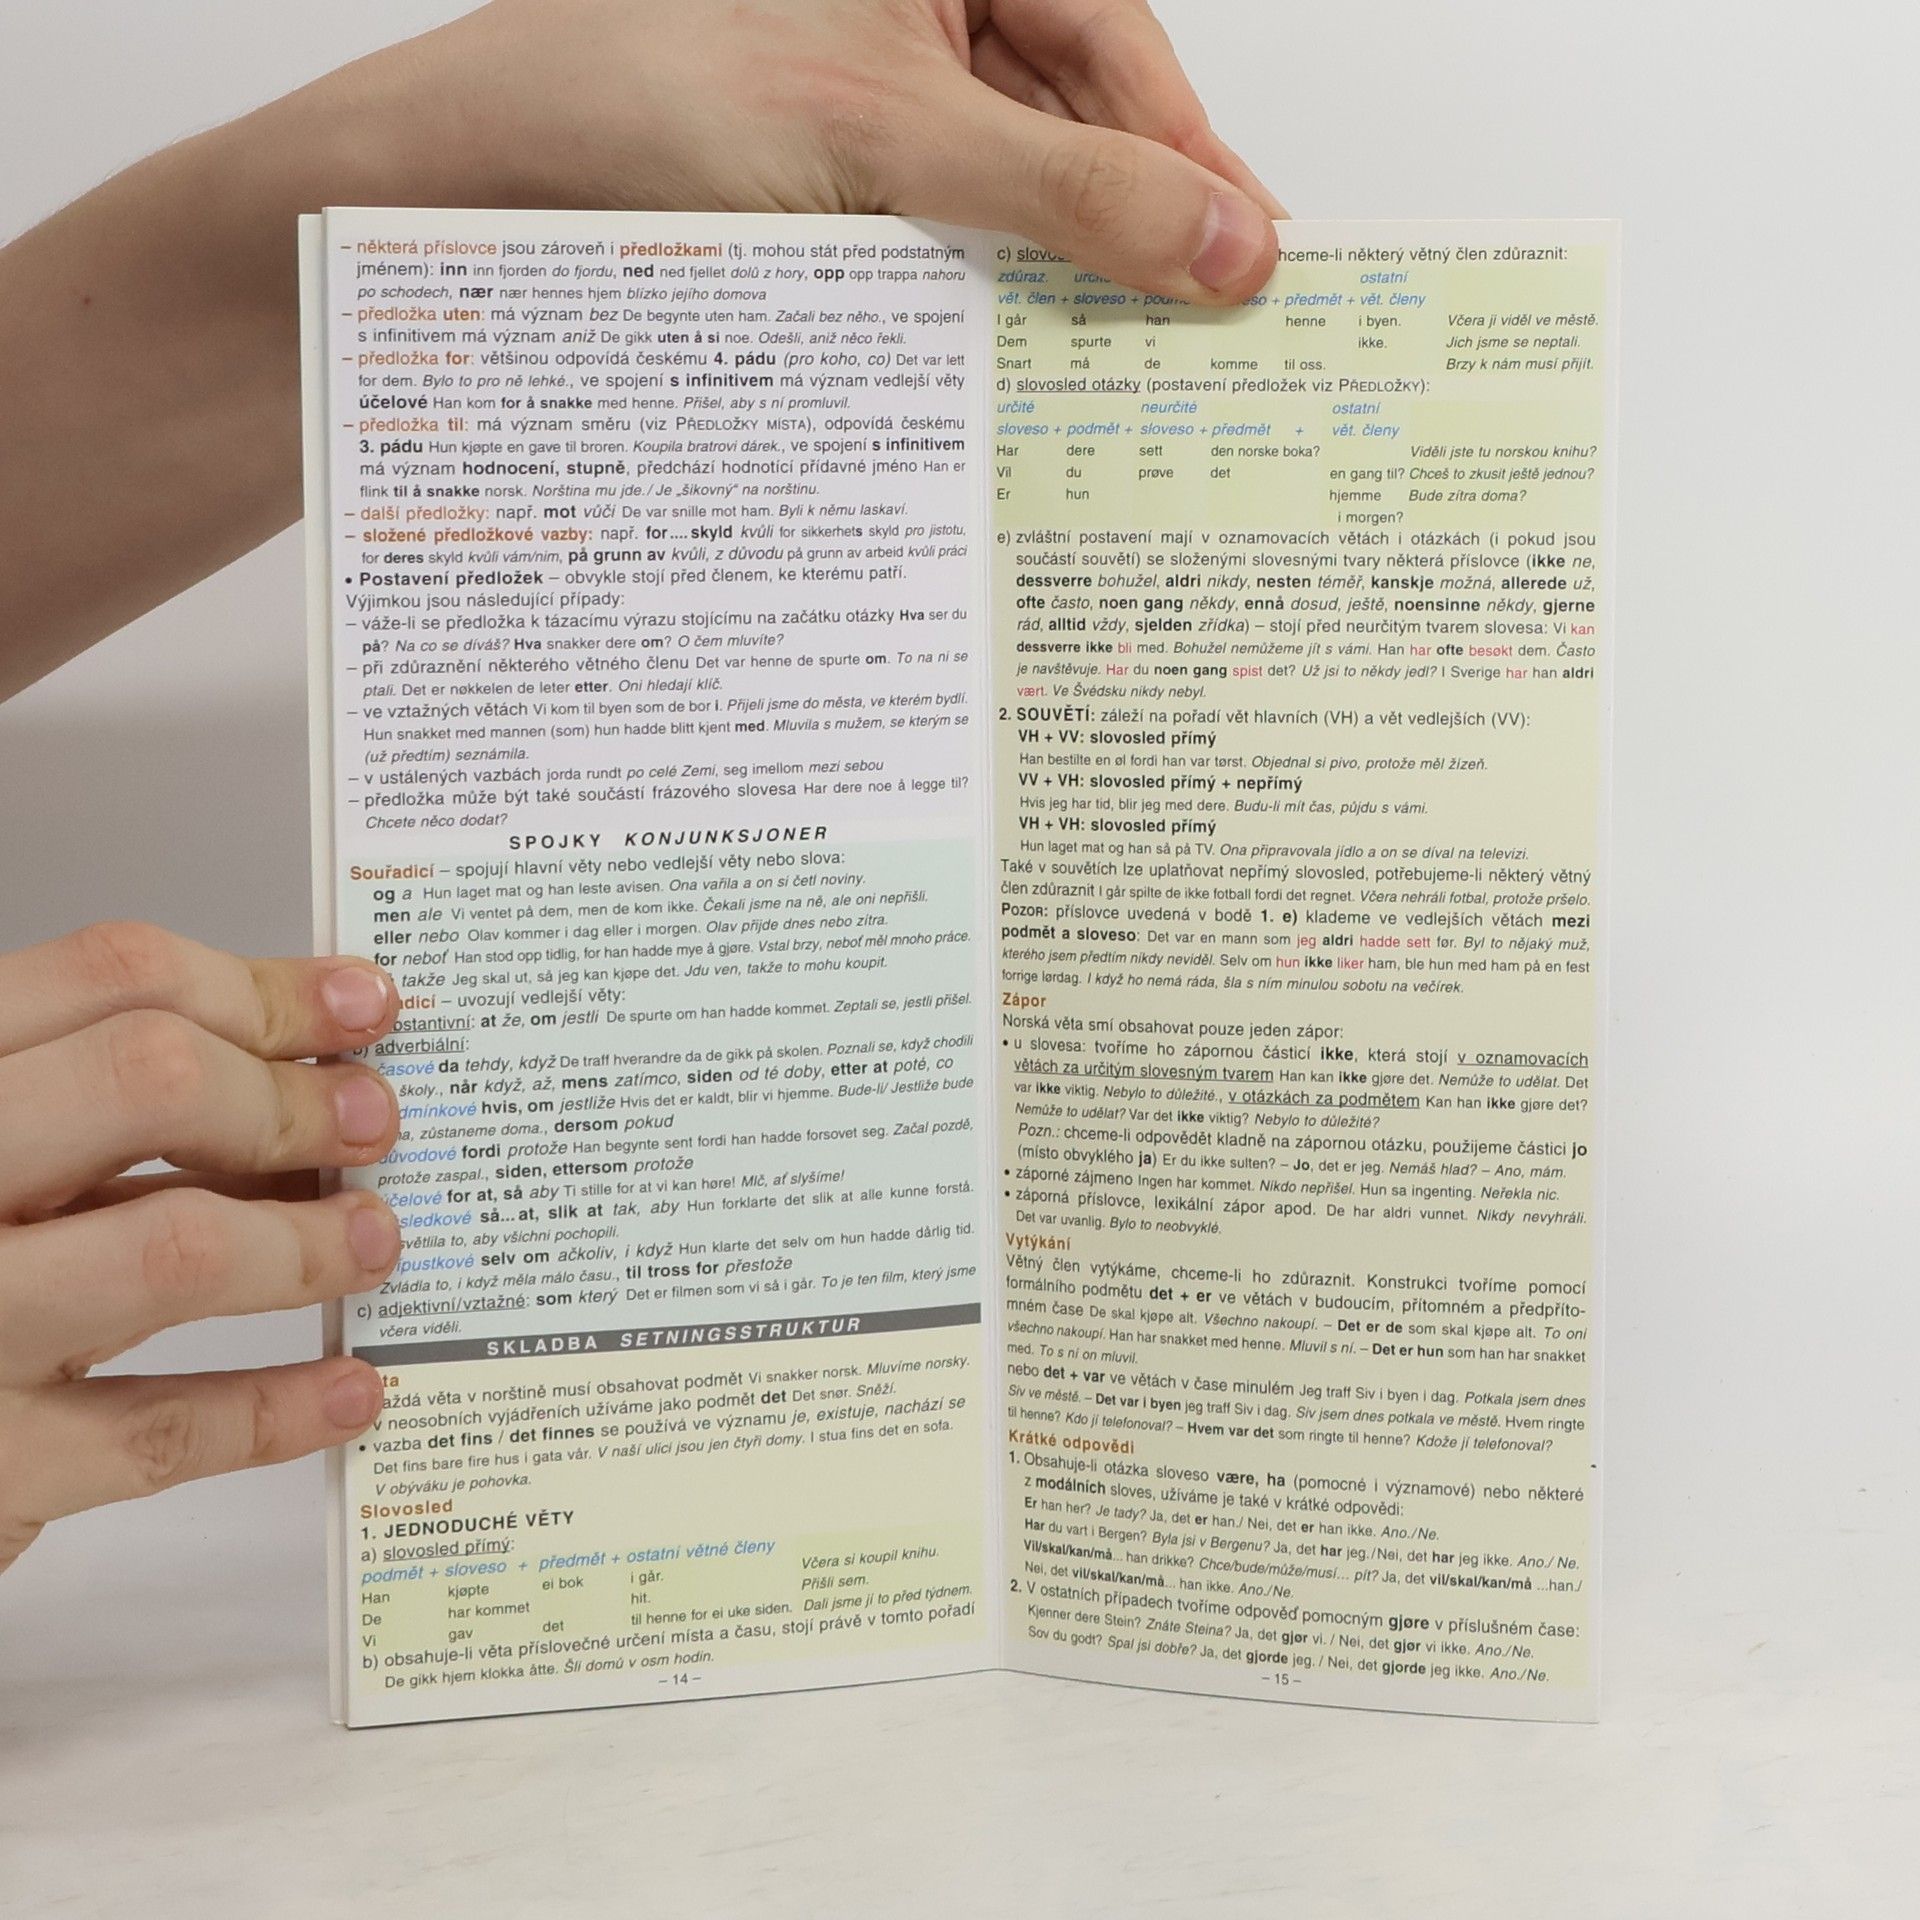 – některá příslovce jsou zároveň i předložkami (tj. mohou stát před podstatným
jménem): inn inn fjorden do fjordu, ned ned fjellet dolů z hory, opp opp trappa nahoru
po schodech, nær nær hennes hjem blízko jejího domova
– předložka uten: má význam bez De begynte uten ham. Začali bez něho., ve spojení
s infinitivem má význam aniž De gikk uten å si noe. Odešli, aniž něco řekli.
– předložka for: většinou odpovídá českému 4. pádu (pro koho, co) Det var lett
for dem. Bylo to pro ně lehké., ve spojení s infinitivem má význam vedlejší věty
účelové Han kom for å snakke med henne. Přišel, aby s ní promluvil.
– předložka til: má význam směru (viz PŘEDLOŽKY MÍSTA), odpovídá českému
3. pádu Hun kjøpte en gave til broren. Koupila bratrovi dárek., ve spojení s infinitivem
má význam hodnocení, stupně, předchází hodnotící přídavné jméno Han er
flink til å snakke norsk. Norština mu jde./ Je „šikovný“ na norštinu.
– další předložky: např. mot vůči De var snille mot ham. Byli k němu laskaví.
– složené předložkové vazby: např. for.... skyld kvůli for sikkerhets skyld pro jistotu,
for deres skyld kvůli vám/nim, på grunn av kvůli, z důvodu på grunn av arbeid kvůli práci
• Postavení předložek – obvykle stojí před členem, ke kterému patří.
Výjimkou jsou následující případy:
– váže-li se předložka k tázacímu výrazu stojícímu na začátku otázky Hva ser du
på? Na co se díváš? Hva snakker dere om? O čem mluvíte?
– při zdůraznění některého větného členu Det var henne de spurte om. To na ni se
ptali. Det er nøkkelen de leter etter. Oni hledají klíč.
– ve vztažných větách Vi kom til byen som de bor i. Přijeli jsme do města, ve kterém bydlí.
Hun snakket med mannen (som) hun hadde blitt kjent med. Mluvila s mužem, se kterým se
(už předtím) seznámila.
– v ustálených vazbách jorda rundt po celé Zemi, seg imellom mezi sebou
– předložka může být také součástí frázového slovesa Har dere noe å legge til?
Chcete něco dodat?
SPOJKY KONJUNKSJONER
Souřadicí – spojují hlavní věty nebo vedlejší věty nebo slova:
og a Hun laget mat og han leste avisen. Ona vařila a on si četl noviny.
men ale Vi ventet på dem, men de kom ikke. Čekali jsme na ně, ale oni nepřišli.
eller nebo Olav kommer i dag eller i morgen. Olav přijde dnes nebo zítra.
for neboť Han stod opp tidlig, for han hadde mye å gjøre. Vstal brzy, neboť měl mnoho práce.
takže Jeg skal ut, så jeg kan kjøpe det. Jdu ven, takže to mohu koupit.
– uvozují vedlejší věty:
at že, om jestli De spurte om han hadde kommet. Zeptali se, jestli přišel.
b) adverbiální:
časové da tehdy, když De traff hverandre da de gikk på skolen. Poznali se, když chodili
školy., når když, až, mens zatímco, siden od té doby, etter at poté, co
hvis, om jestliže Hvis det er kaldt, blir vi hjemme. Bude-li/ Jestliže bude
zůstaneme doma., dersom pokud
důvodové fordi protože Han begynte sent fordi han hadde forsovet seg. Začal pozdě,
protože zaspal., siden, ettersom protože
účelové for at, så aby Ti stille for at vi kan høre! Mlč, ať slyšíme!
så... at, slik at tak, aby Hun forklarte det slik at alle kunne forstå.
to, aby všichni pochopili.
selv om ačkoliv, i když Hun klarte det selv om hun hadde dårlig tid.
Zvládla to, i když měla málo času., til tross for přestože
c) adjektivní/vztažné: som který Det er filmen som vi så i går. To je ten film, který jsme
včera viděli.
SKLADBA SETNINGSSTRUKTUR
věta v norštině musí obsahovat podmět Vi snakker norsk. Mluvíme norsky.
v neosobních vyjádřeních užíváme jako podmět det Det snør. Sněží.
• vazba det fins / det finnes se používá ve významu je, existuje, nachází se
Det fins bare fire hus i gata vår. V naší ulici jsou jen čtyři domy. I stua fins det en sofa.
V obýváku je pohovka.
Slovosled
1. JEDNODUCHÉ VĚTY
a) slovosled přímý:
podmět + sloveso + předmět + ostatní větné členy
Han kjøpte ei bok i går. Včera si koupil knihu.
De har kommet hit. Přišli sem.
Vi gav det til henne for ei uke siden. Dali jsme jí to před týdnem.
b) obsahuje-li věta příslovečné určení místa a času, stojí právě v tomto pořadí
De gikk hjem klokka åtte. Šli domů v osm hodin.
– 14 –
c) některý větný člen zdůraznit:
zdůraz. ostatní
vět. člen + sloveso + + předmět + vět. členy
I går så han henne i byen. Včera ji viděl ve městě.
Dem spurte vi ikke. Jich jsme se neptali.
Snart må de komme til oss. Brzy k nám musí přijít.
d) slovosled otázky (postavení předložek viz PŘEDLOŽKY):
určité neurčité ostatní
sloveso + podmět + sloveso + předmět + vět. členy
Har dere sett den norske boka? Viděli jste tu norskou knihu?
Vil du prøve det en gang til? Chceš to zkusit ještě jednou?
Er hun hjemme Bude zítra doma?
i morgen?
e) zvláštní postavení mají v oznamovacích větách i otázkách (i pokud jsou
součástí souvětí) se složenými slovesnými tvary některá příslovce (ikke ne,
dessverre bohužel, aldri nikdy, nesten téměř, kanskje možná, allerede už,
ofte často, noen gang někdy, ennå dosud, ještě, noensinne někdy, gjerne
rád, alltid vždy, sjelden zřídka) – stojí před neurčitým tvarem slovesa: Vi kan
dessverre ikke bli med. Bohužel nemůžeme jít s vámi. Han har ofte besøkt dem. Často
je navštěvuje. Har du noen gang spist det? Už jsi to někdy jedl? I Sverige har han aldri
vært. Ve Švédsku nikdy nebyl.
2. SOUVĚTÍ: záleží na pořadí vět hlavních (VH) a vět vedlejších (VV):
VH + VV: slovosled přímý
Han bestilte en øl fordi han var tørst. Objednal si pivo, protože měl žízeň.
VV + VH: slovosled přímý + nepřímý
Hvis jeg har tid, blir jeg med dere. Budu-li mít čas, půjdu s vámi.
VH + VH: slovosled přímý
Hun laget mat og han så på TV. Ona připravovala jídlo a on se díval na televizi.
Také v souvětích lze uplatňovat nepřímý slovosled, potřebujeme-li některý větný
člen zdůraznit I går spilte de ikke fotball fordi det regnet. Včera nehráli fotbal, protože pršelo.
POZOR: příslovce uvedená v bodě 1. e) klademe ve vedlejších větách mezi
podmět a sloveso: Det var en mann som jeg aldri hadde sett før. Byl to nějaký muž,
kterého jsem předtím nikdy neviděl. Selv om hun ikke liker ham, ble hun med ham på en fest
forrige lørdag. I když ho nemá ráda, šla s ním minulou sobotu na večírek.
Zápor
Norská věta smí obsahovat pouze jeden zápor:
• u slovesa: tvoříme ho zápornou částicí ikke, která stojí v oznamovacích
větách za určitým slovesným tvarem Han kan ikke gjøre det. Nemůže to udělat. Det
var ikke viktig. Nebylo to důležité., v otázkách za podmětem Kan han ikke gjøre det?
Nemůže to udělat? Var det ikke viktig? Nebylo to důležité?
Pozn.: chceme-li odpovědět kladně na zápornou otázku, použijeme částici jo
(místo obvyklého ja) Er du ikke sulten? – Jo, det er jeg. Nemáš hlad? – Ano, mám.
• záporné zájmeno Ingen har kommet. Nikdo nepřišel. Hun sa ingenting. Neřekla nic.
• záporná příslovce, lexikální zápor apod. De har aldri vunnet. Nikdy nevyhráli.
Det var uvanlig. Bylo to neobvyklé.
Vytýkání
Větný člen vytýkáme, chceme-li ho zdůraznit. Konstrukci tvoříme pomocí
formálního podmětu det + er ve větách v budoucím, přítomném a předpříto-
mném čase De skal kjøpe alt. Všechno nakoupí. – Det er de som skal kjøpe alt. To oni
všechno nakoupí. Han har snakket med henne. Mluvil s ní. – Det er hun som han har snakket
med. To s ní on mluvil.
nebo det + var ve větách v čase minulém Jeg traff Siv i byen i dag. Potkala jsem dnes
Siv ve městě. – Det var i byen jeg traff Siv i dag. Siv jsem dnes potkala ve městě. Hvem ringte
til henne? Kdo jí telefonoval? – Hvem var det som ringte til henne? Kdože jí telefonoval?
Krátké odpovědi
1. Obsahuje-li otázka sloveso være, ha (pomocné i významové) nebo některé
z modálních sloves, užíváme je také v krátké odpovědi:
Er han her? Je tady? Ja, det er han./ Nei, det er han ikke. Ano./Ne.
Har du vart i Bergen? Byla jsi v Bergenu? Ja, det har jeg./Nei, det har jeg ikke. Ano./ Ne.
Vil/skal/kan/må... han drikke? Chce/bude/může/musí... pít? Ja, det vil/skal/kan/må ...han./
Nei, det vil/skal/kan/må... han ikke. Ano./Ne.
2. V ostatních případech tvoříme odpověď pomocným gjøre v příslušném čase:
Kjenner dere Stein? Znáte Steina? Ja, det gjør vi. / Nei, det gjør vi ikke. Ano./Ne.
Sov du godt? Spal jsi dobře? Ja, det gjorde jeg. / Nei, det gjorde jeg ikke. Ano./Ne.
– 15 –